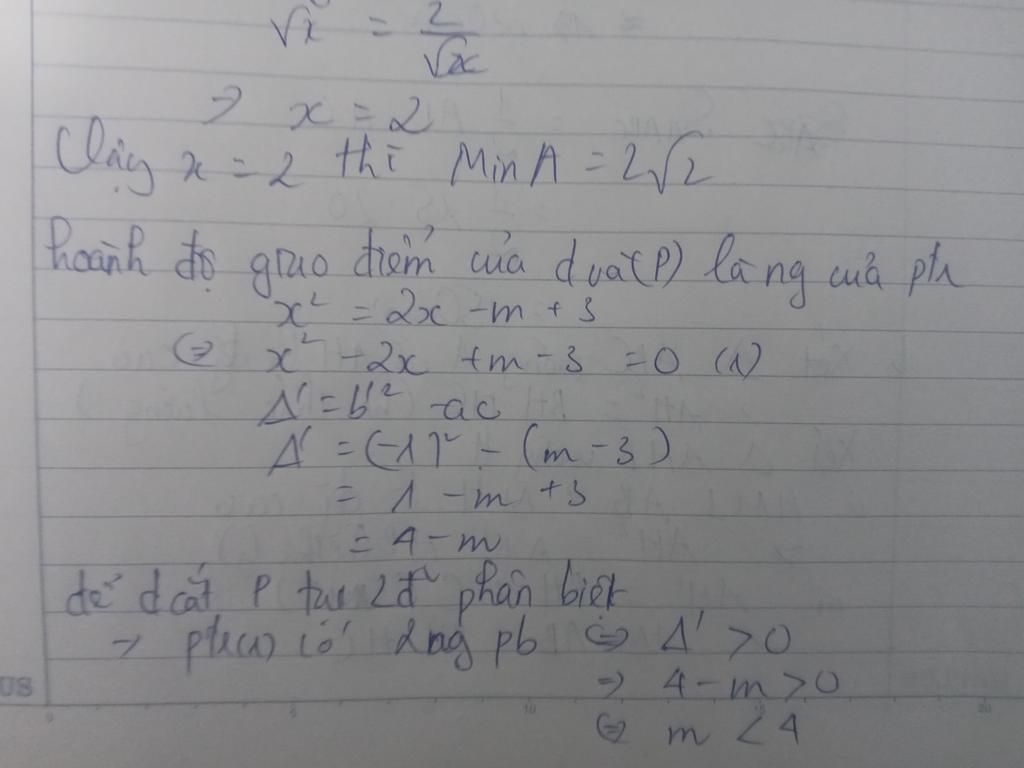 √x = 2/√x
=> x = 2
Vậy x = 2 thì Min A = 2√2
hoành độ giao điểm của d và (P) là ng của pt
x² = 2x - m + 3
<=> x² - 2x + m - 3 = 0 (1)
Δ' = b'² - ac
Δ' = (-1)² - (m - 3)
= 1 - m + 3
= 4 - m
để d cắt P tại 2đ phân biệt
→ pt(1) có 2ng pb <=> Δ' > 0
=> 4 - m > 0
<=> m < 4